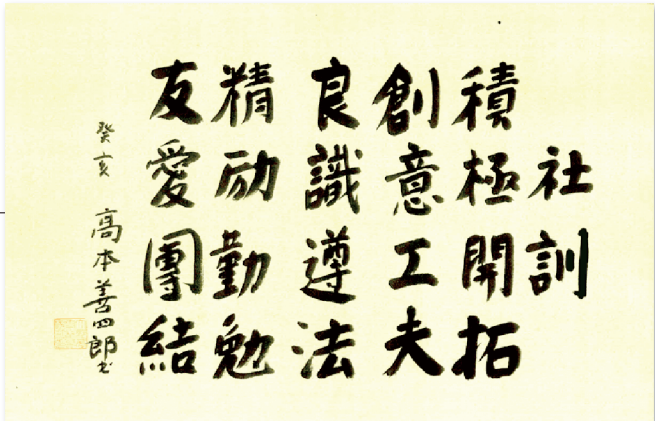 社訓
積極開拓
創意工夫
良識遵法
精励勤勉
友愛團結
癸亥 高本善四郎書